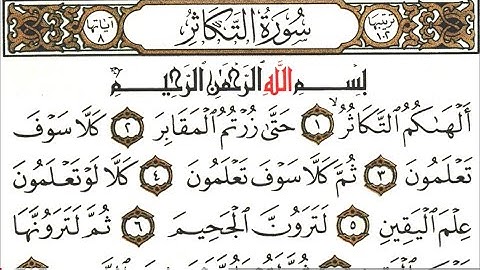 ترتيبها ١٠٢ سُورَةُ التَّكَاثُرِ آياتها ٨
بِسْمِ اللَّهِ الرَّحْمَٰنِ الرَّحِيمِ
أَلْهَاكُمُ التَّكَاثُرُ ١ حَتَّىٰ زُرْتُمُ الْمَقَابِرَ ٢ كَلَّا سَوْفَ
تَعْلَمُونَ ٣ ثُمَّ كَلَّا سَوْفَ تَعْلَمُونَ ٤ كَلَّا لَوْ تَعْلَمُونَ
عِلْمَ الْيَقِينِ ٥ لَتَرَوُنَّ الْجَحِيمَ ٦ ثُمَّ لَتَرَوُنَّهَا